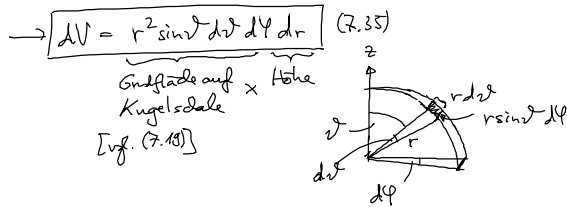 → dV = r² sinϑ dϑ dφ dr (7.35)
Grundfläche auf × Höhe
Kugelschale
[vgl. (7.19)]
z
r dϑ
r sinϑ dφ
ϑ
r
dϑ
dφ